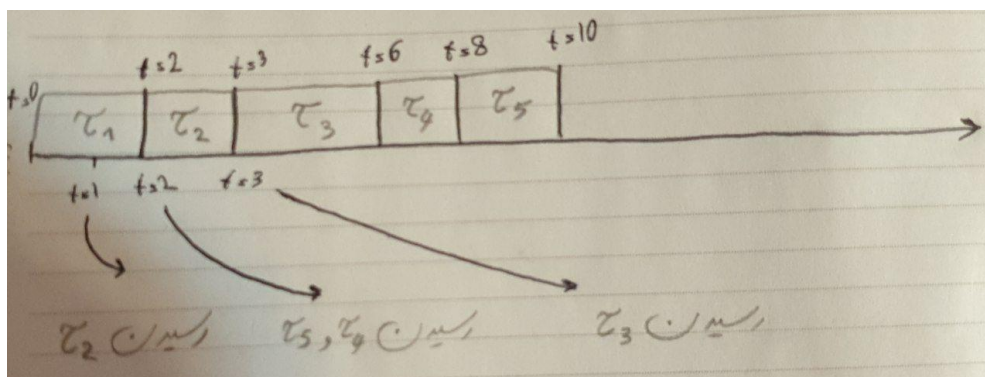 t=0 t=2 t=3 t=6 t=8 t=10
τ1 τ2 τ3 τ4 τ5
t=1 t=2 t=3
رسیدن τ2
رسیدن τ4 , τ5
رسیدن τ3